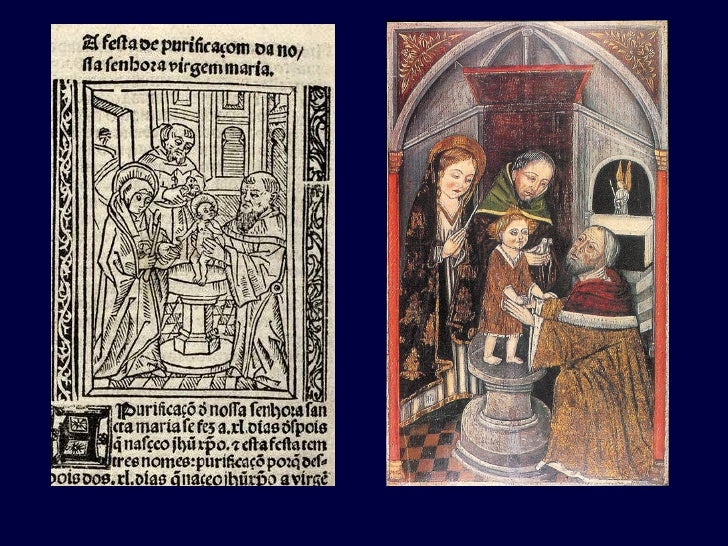 A festa de purificaçom da no/
ssa senhora virgem maria.
Purificaçõ ð nossa senhora san
cta maria se fez a .xl. dias ðspois
q̃ nasçeo jhũ xp̃o. ⁊ esta festa tem
tres nomes: purificaçõ porq̃ des-
pois dos .xl. dias q̃ naçeo jhũ xp̃o a virgẽ